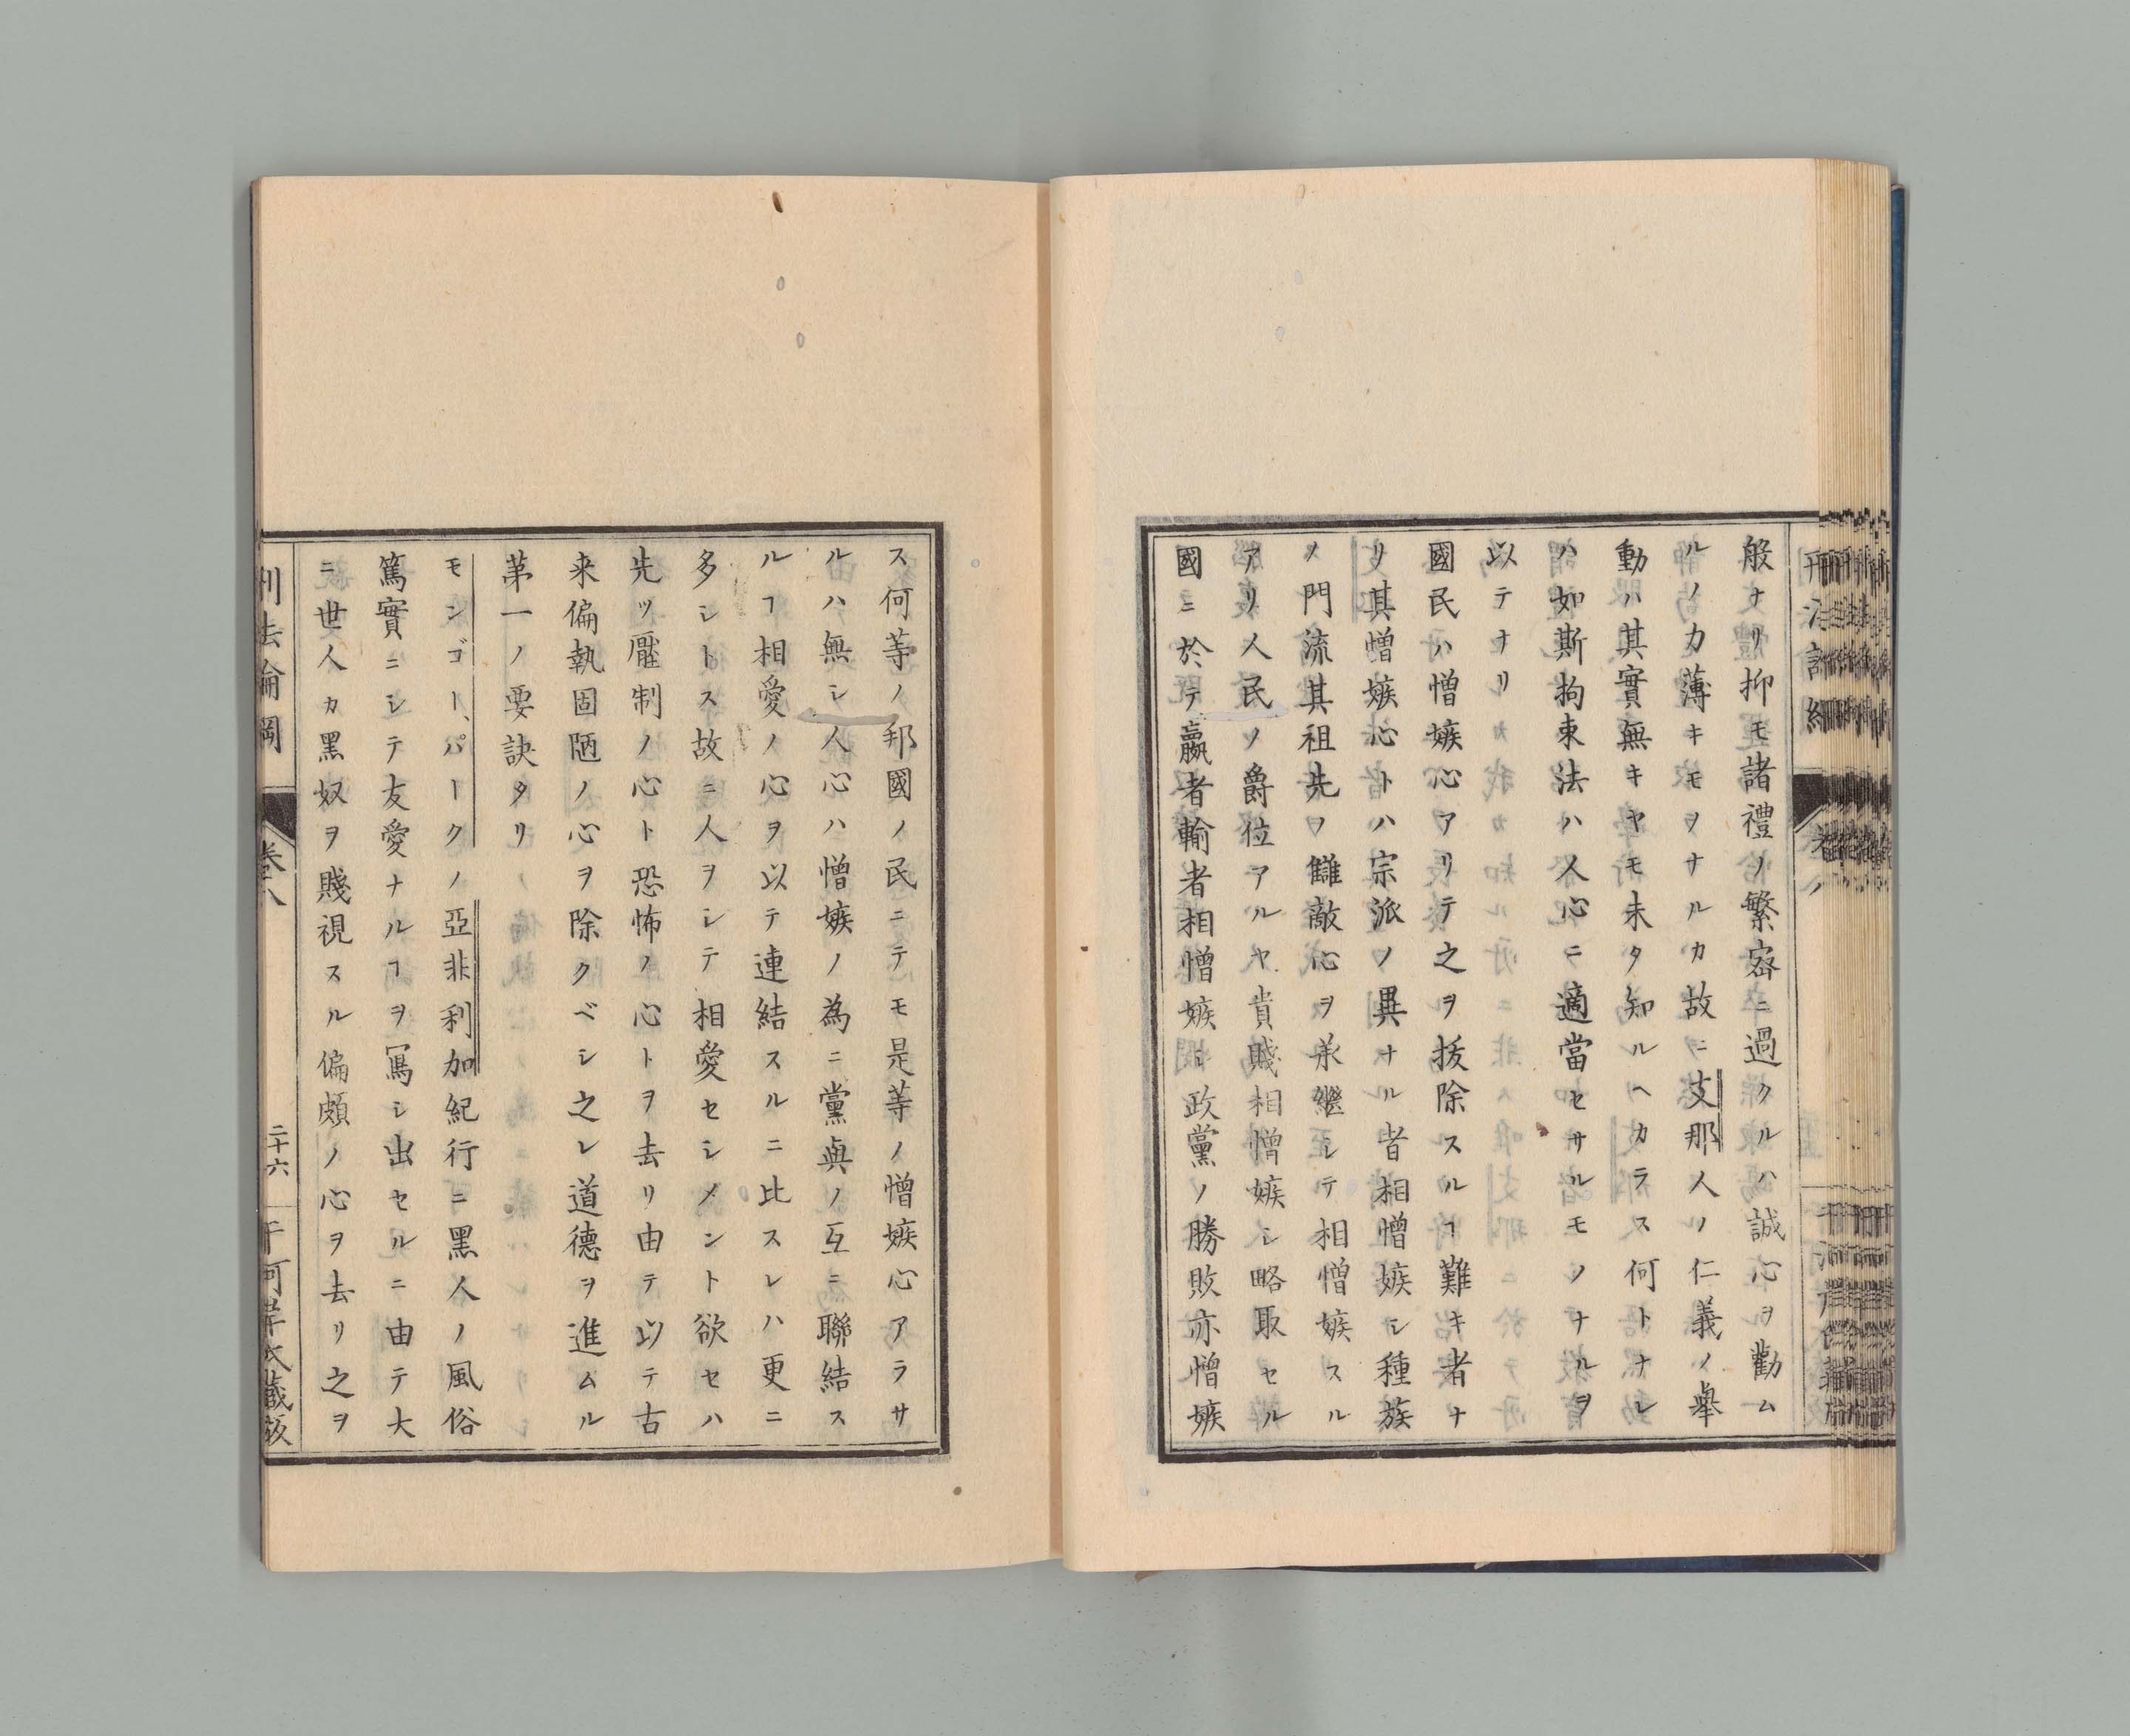 般ナリ抑モ諸禮ノ繁密ニ過クルハ誠心ヲ勸ム
ルノ力薄キモヲナルカ故ニ支那人ノ仁義ノ擧
動ハ其實無キヤモ未タ知ルヘカラス何トナレ
ハ如斯拘束法ハ人心ニ適當セサルモノナルヲ
以テナリ
國民ハ憎嫉心アリテ之ヲ拔除スルヿ難キ者ナ
リ其憎嫉心トハ宗派ノ異ナル者相憎嫉シ種族
ノ門流其祖先ノ讎敵心ヲ承繼シテ相憎嫉スル
アリ人民ノ爵位アルヤ貴賤相憎嫉シ略取セル
國ニ於テ贏者輸者相憎嫉シ政黨ノ勝敗亦憎嫉
ス何等ノ邦國ノ民ニテモ是等ノ憎嫉心アラサ
ルハ無シ人心ハ憎嫉ノ為ニ黨與ノ互ニ聯結ス
ルヿ相愛ノ心ヲ以テ連結スルニ比スレハ更ニ
多シトス故ニ人ヲシテ相愛セシメント欲セハ
先ツ壓制ノ心ト恐怖ノ心トヲ去リ由テ以テ古
来偏執固陋ノ心ヲ除クベシ之レ道德ヲ進ムル
苐一ノ要訣タリ
モンゴー、パークノ亞非利加紀行ニ黑人ノ風俗
篤實ニシテ友愛ナルヿヲ寫シ出セルニ由テ大
ニ世人カ黑奴ヲ賤視スル偏頗ノ心ヲ去リ之ヲ
刑法論綱
卷八
二十六